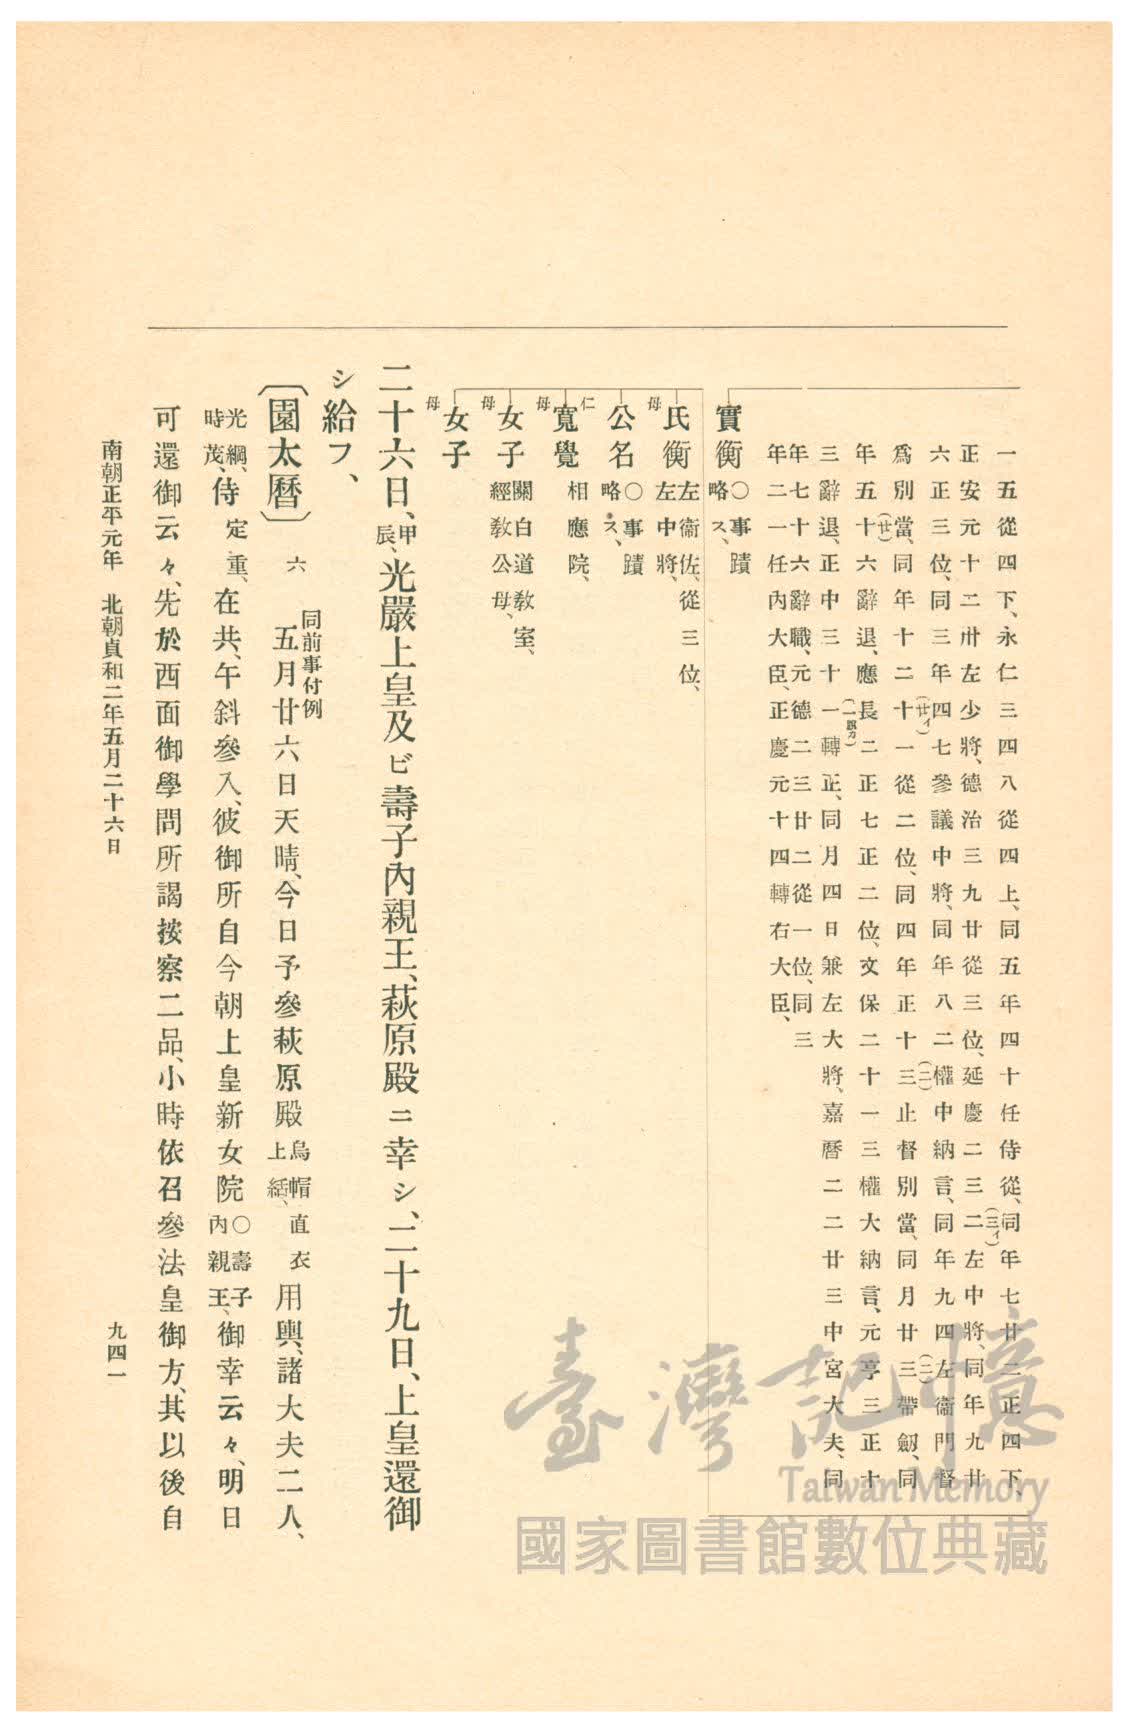 一五從四下、永仁三四八從四上、同五年四十任侍從、同年七廿二正四下、
正安元十二卅左少將、德治三九廿從三位、延慶二三二(三イ)左中將、同年九廿
六正三位、同三年四(廿イ)七參議中將、同年八二(二)權中納言、同年九四(二)左衞門督
爲別當、同年十二十一從二位、同四年正十三止督別當、同月廿三帶劔、同
年五十(廿)六辭退、應長二(一誤カ)正七正二位、文保二十一三權大納言、元亨三正十
三辭退、正中三十一轉正、同月四日兼左大將、嘉曆二二廿三中宮大夫、同
年七十六辭職、元德二三廿二從一位、同三
年二一任內大臣、正慶元十四轉右大臣、
實衡 ○事蹟略ス、
母 氏衡 左衞佐、從三位、左中將、
公名 ○事蹟略ス、
仁母 寬覺 相應院、
母 女子 關白道敎室、經敎公母、
母 女子
二十六日、甲辰、光嚴上皇及ビ壽子內親王、萩原殿ニ幸シ、二十九日、上皇還御
シ給フ、
〔園太曆〕 六 同前事付例 五月廿六日天晴、今日予參萩原殿烏帽直衣上絬、用輿、諸大夫二人、
光綱、時茂、侍定重、在共、午斜參入、彼御所自今朝上皇新女院○壽子內親王、御幸云々、明日
可還御云々、先於西面御學問所謁按察二品、小時依召參法皇御方、其以後自
南朝正平元年 北朝貞和二年五月二十六日
九四一
臺灣記憶
Taiwan Memory
國家圖書館數位典藏